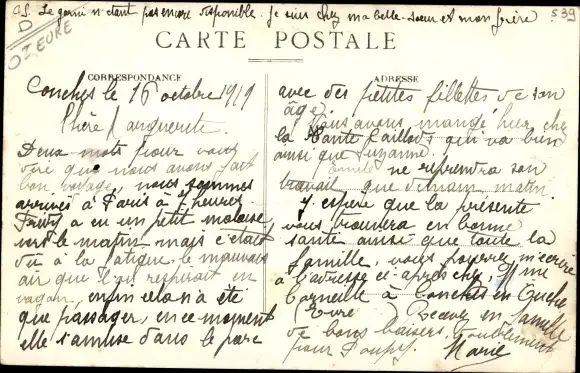 P.S. Le garni n'étant pas encore disponible. Je suis chez ma belle-sœur et mon frère
539
D
OZ EURE
CARTE POSTALE
CORRESPONDANCE
ADRESSE
Conches le 16 octobre 1919
Chère Marguerite.
Deux mots pour vous
dire que nous avons fait
bon voyage, nous sommes
arrivés à Paris à heures
a eu un petit malaise
vers le matin mais c'était
dû à la fatigue, le mauvais
air que l'on respirait en
vagon, enfin cela n'a été
que passager, en ce moment
elle s'amuse dans le parc
avec des petites fillettes de son
âge.
Nous avons mangé hier chez
la tante qui va bien
ainsi que Suzanne.
Emile ne reprendra son
travail que demain matin
J'espère que la présente
vous trouvera en bonne
santé ainsi que toute la
famille, vous pourrez m'écrire
à l'adresse ci-après chez Mme
Corneille à Conches en Ouche
Eure Recevez en famille
de bons baisers, doublement
pour
Marie